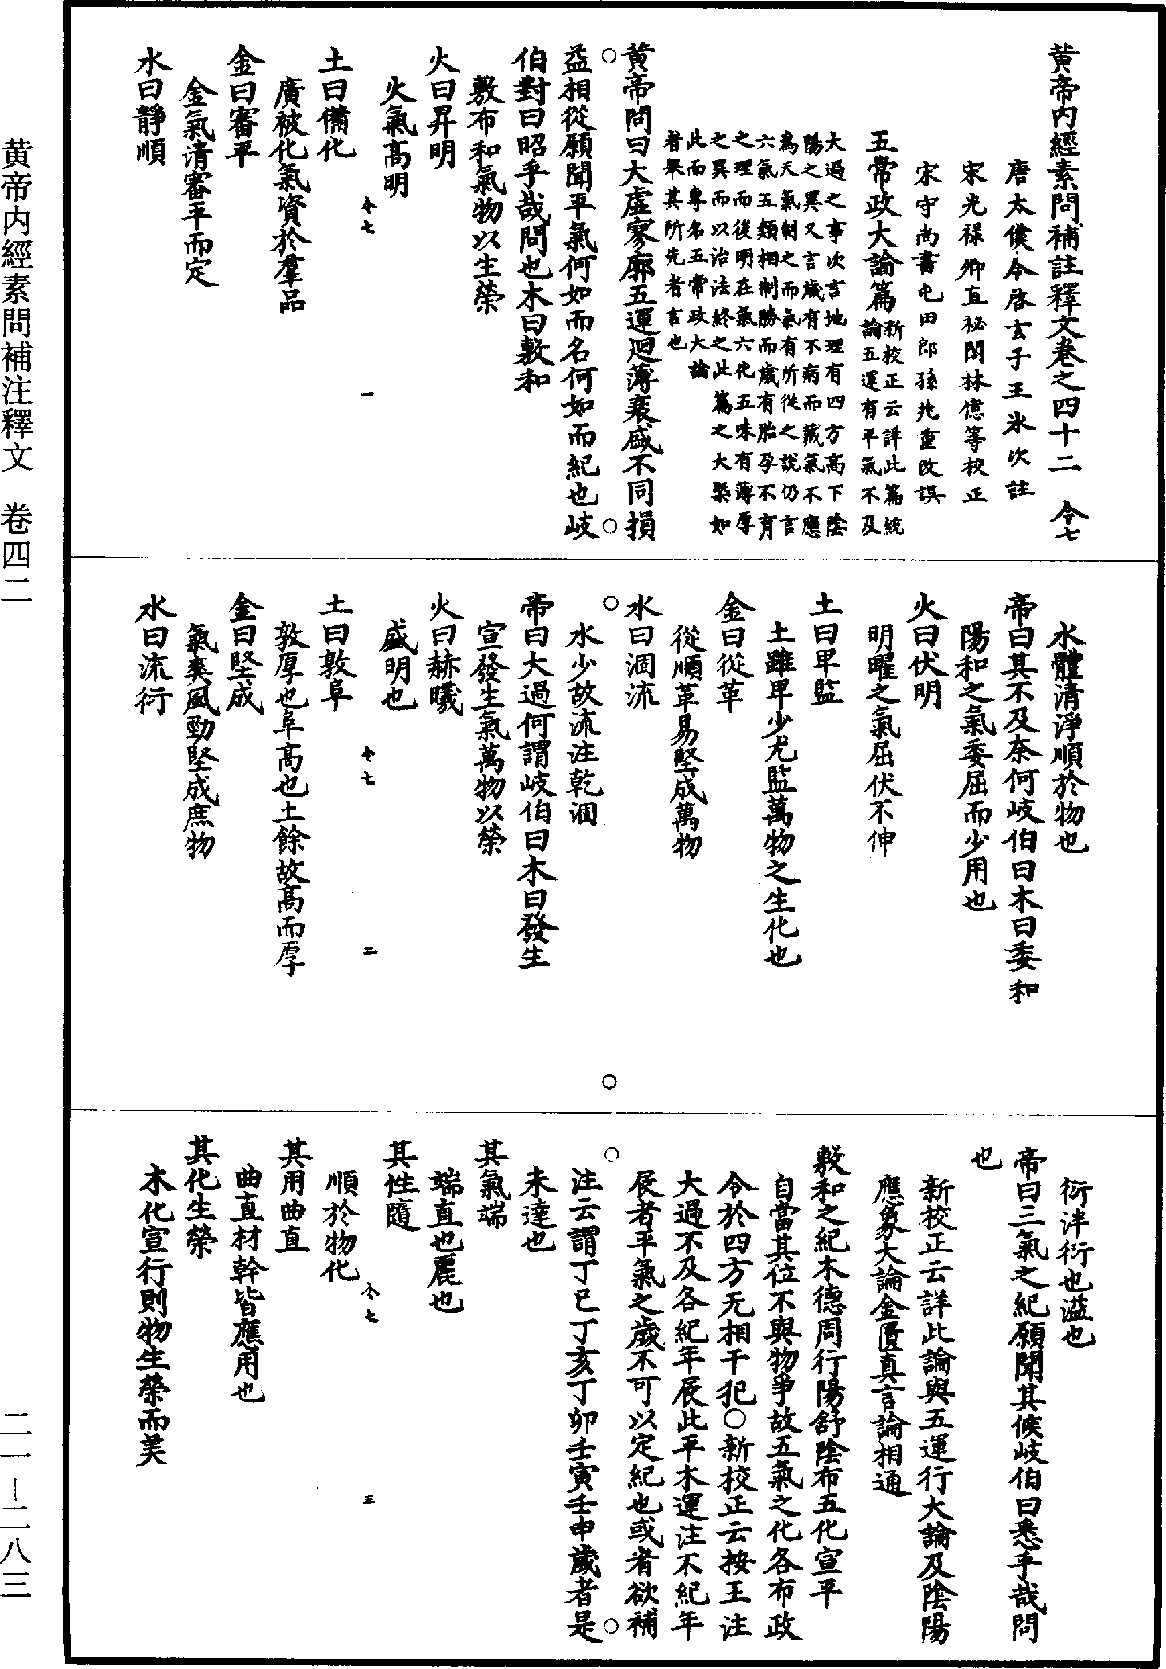 黃帝內經素問補註釋文卷之四十二 令七
唐太僕令啓玄子王氷次註
宋光祿卿直祕閣林億等校正
宋守尚書屯田郎孫兆重改誤
五常政大論篇新校正云詳此篇統
論五運有平氣不及
大過之事次言地理有四方高下陰
陽之異又言歲有不病而藏氣不應
爲天氣制之而氣有所從之說仍言
六氣五類相制勝而歲有胎孕不育
之理而後明在氣六化五味有薄厚
之異而以治法終之此篇之大槩如
此而專名五常政大論
者舉其所先者言也
黃帝問曰大虛寥廓五運迴薄衰盛不同損
益相從願聞平氣何如而名何如而紀也岐
伯對曰昭乎哉問也木曰敷和
敷布和氣物以生榮
火曰昇明
火氣高明
令七 一
土曰備化
廣被化氣資於羣品
金曰審平
金氣清審平而定
水曰靜順
水體清淨順於物也
帝曰其不及柰何岐伯曰木曰委和
陽和之氣委屈而少用也
火曰伏明
明曜之氣屈伏不伸
土曰卑監
土雖卑少尤監萬物之生化也
金曰從革
從順革易堅成萬物
水曰涸流
水少故流注乾涸
帝曰大過何謂岐伯曰木曰發生
宣發生氣萬物以榮
火曰赫曦
盛明也
令七 二
土曰敦阜
敦厚也阜高也土餘故高而厚
金曰堅成
氣爽風勁堅成庶物
水曰流衍
衍泮衍也溢也
帝曰三氣之紀願聞其候岐伯曰悉乎哉問
也
新校正云詳此論與五運行大論及陰陽
應象大論金匱真言論相通
敷和之紀木德周行陽舒陰布五化宣平
自當其位不與物爭故五氣之化各布政
令於四方无相干犯○新校正云按王注
大過不及各紀年辰此平木運注不紀年
辰者平氣之歲不可以定紀也或者欲補
注云謂丁巳丁亥丁卯壬寅壬申歲者是
未達也
其氣端
端直也麗也
其性隨
順於物化
令七 三
其用曲直
曲直材幹皆應用也
其化生榮
木化宣行則物生榮而美
黃帝內經素問補注釋文 卷四二
二一—二八三